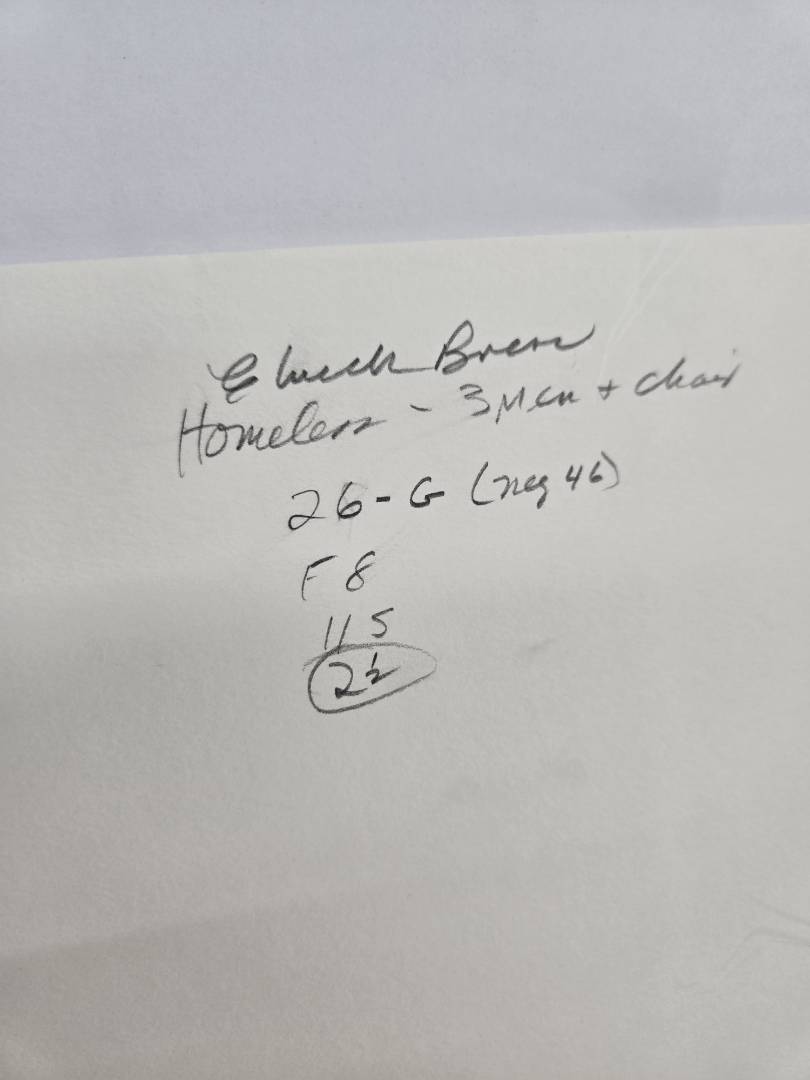 Homeless - 3 Men + chair
26-G (neg 46)
F 8
11 5
2½